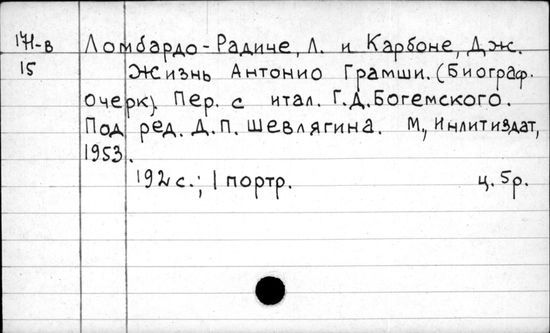 171-в Ломбардо-Радиче, Л. и Карбоне, Дж.
15 Жизнь Антонио Грамши. (Биограф.
очерк). Пер. с итал. Г.Д.Богемского.
Под ред. Д.П. Шевлягина. М., Инлитиздат,
1953.
192 с.; 1 портр. ц. 5р.